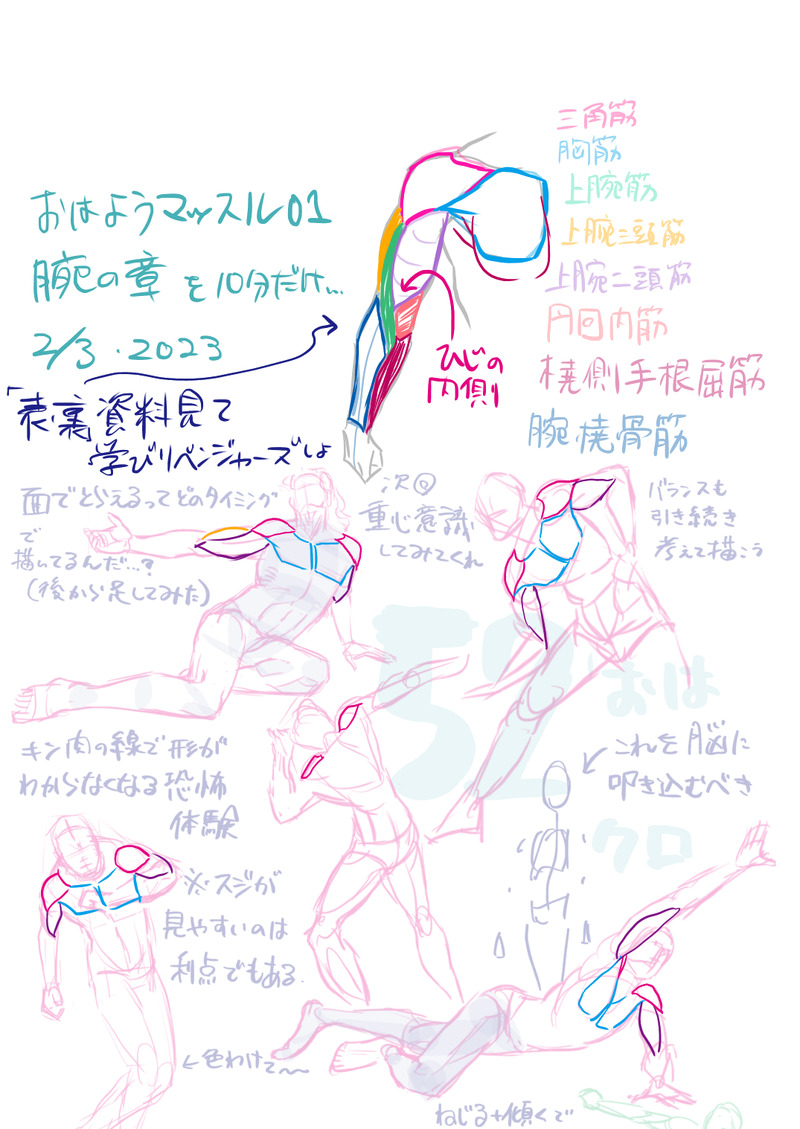 三角筋
胸筋
上腕筋
上腕三頭筋
上腕二頭筋
円回内筋
橈側手根屈筋
腕橈骨筋
おはようマッスル01
腕の章を10分だけ...
2/3.2023
「表裏」資料見て
学びリベンジャーズしよ
ひじの
内側
面でとらえるってどのタイミング
で
描いてるんだ...?
(後から足してみた)
次回
重心意識
してみてくれ
バランスも
引き続き
考えて描こう
52
おは
クロ
キン肉の線で形が
わからなくなる恐怖
体験
これを脳に
叩き込むべき
※スジが
見やすいのは
利点でもある.
←色わけて〜
ねじる+傾くで